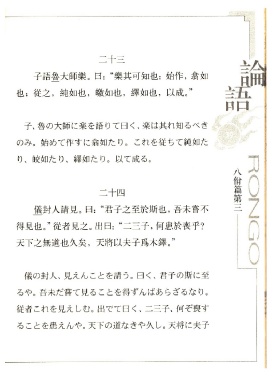 二十三
子語魯大師樂。曰：“樂其可知也：始作，翕如
也；從之，純如也，皦如也，繹如也，以成。”
子，魯の大師に楽を語りて曰く，楽は其れ知るべき
のみ。始めて作すに翕如たり。これを従ちて純如た
り，皦如たり，繹如たり。以て成る。
二十四
儀封人請見。曰：“君子之至於斯也，吾未嘗不
得見也。”從者見之。出曰：“二三子，何患於喪乎？
天下之無道也久矣，天將以夫子爲木鐸。”
儀の封人，見えんことを請う。曰く，君子の斯に至
るや，吾未だ嘗て見ることを得ずんばあらざるなり。
従者これを見えしむ。出でて曰く，二三子，何ぞ喪す
ることを患えんや。天下の道なきや久し。天将に夫子
論語
RONGO
八佾篇第三